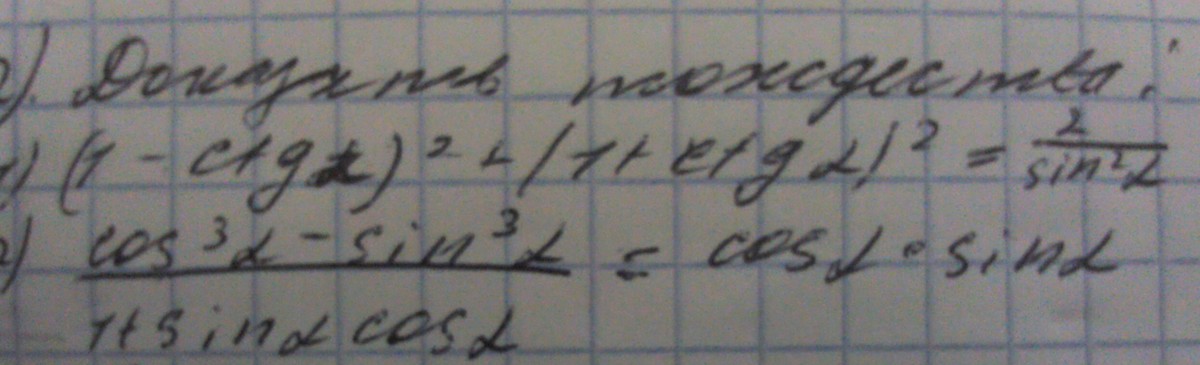 2). Доказать тождества:
1) (1 - ctgα)² + (1 + ctgα)² = 2/sin²α
2) cos³α - sin³α / 1 + sinα cosα = cosα · sinα